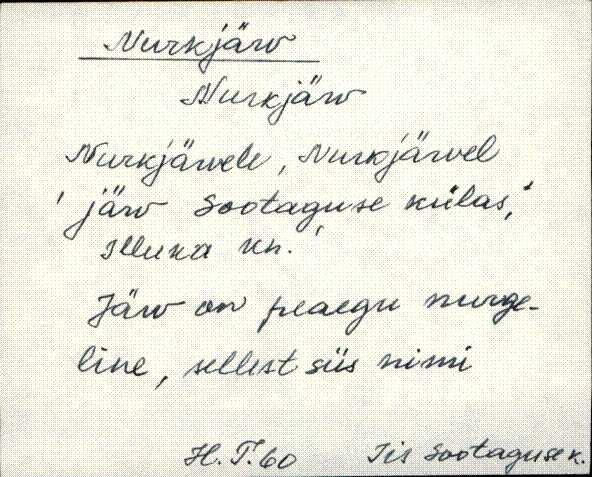 Nurkjärv
Nurkjärv
Nurkjärvele, Nurkjärvel
'järv Sootaguse külas,
Illuka kn.'
Järv on peaegu nurge-
line, sellest siis nimi
H.T. 60 Iis Sootaguse k.